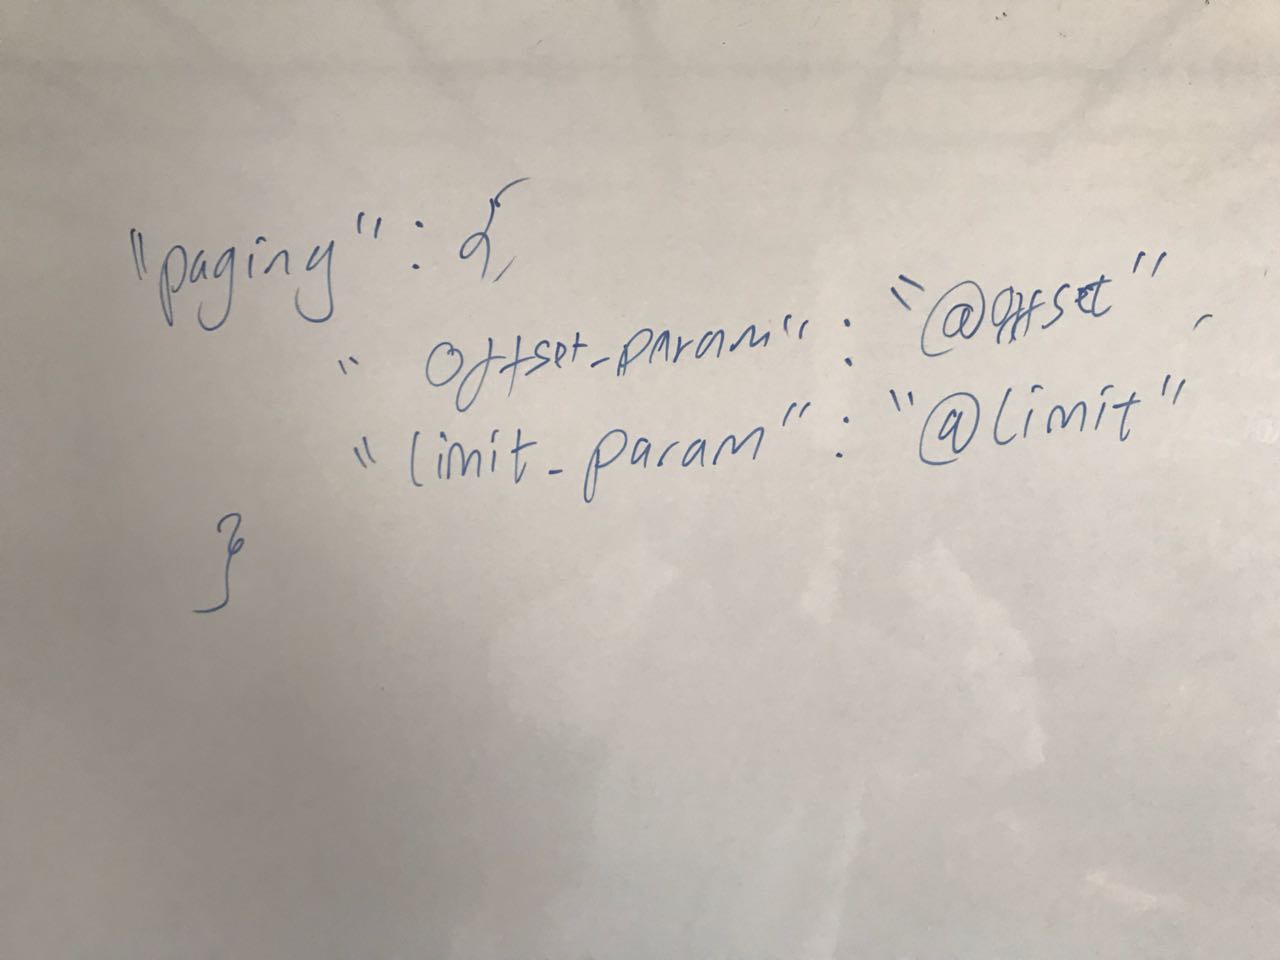 "paging": {
"offset_param": "@offset",
"limit_param": "@limit"
}